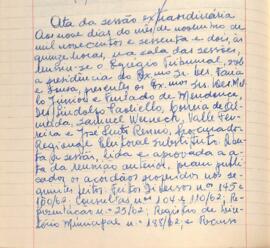 Ata da sessão extraordinária
Aos nove dias do mês de novembro de
mil novecentos e sessenta e dois, às
quinze horas, na sala das sessões,
reuniu-se o Egrégio Tribunal, sob
a presidência do Exmo. Sr. Des. Faria
e Sousa, presentes os Exmos. Srs. Des. Melo
Junior e Furtado de Mendonça,
Drs. Custódio, Correia de Al-
meida, Samuel Wuneck, Valle Fer-
reira e José Luiz Renno, procurador
Regional Eleitoral Substituto. Aber-
ta a sessão, lida e aprovada a a-
ta da reunião anterior, foram publi-
cados os acórdãos proferidos nos se-
guintes feitos: Feitos Diversos nºs 145 e
160/62; Consultas nºs 104 e 110/62; Re-
presentação nº 25/62; Registro de Dire-
tório Municipal nº 138/62; e Recurso